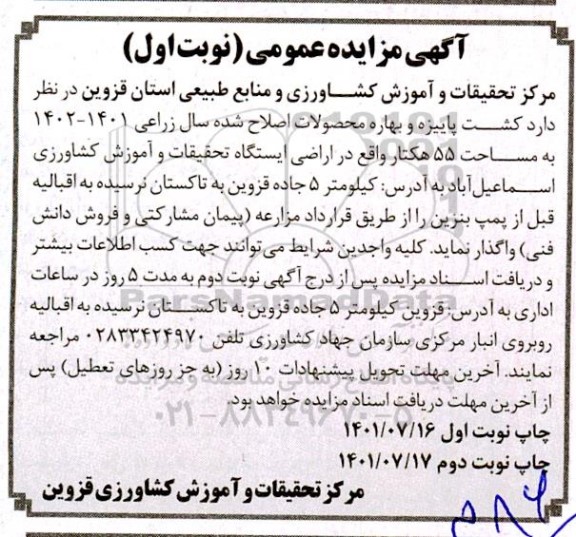 آگهی مزایده عمومی (نوبت اول)
مرکز تحقیقات و آموزش کشاورزی و منابع طبیعی استان قزوین در نظر
دارد کشت پاییزه و بهاره محصولات اصلاح شده سال زراعی ۱۴۰۱-۱۴۰۲
به مساحت ۵۵ هکتار واقع در اراضی ایستگاه تحقیقات و آموزش کشاورزی
اسماعیل‌آباد به آدرس: کیلومتر ۵ جاده قزوین به تاکستان نرسیده به اقبالیه
قبل از پمپ بنزین را از طریق قرارداد مزارعه (پیمان مشارکتی و فروش دانش
فنی) واگذار نماید. کلیه واجدین شرایط می‌توانند جهت کسب اطلاعات بیشتر
و دریافت اسناد مزایده پس از درج آگهی نوبت دوم به مدت ۵ روز در ساعات
اداری به آدرس: قزوین کیلومتر ۵ جاده قزوین به تاکستان نرسیده به اقبالیه
روبروی انبار مرکزی سازمان جهاد کشاورزی تلفن ۰۲۸۳۳۴۲۴۹۷۰ مراجعه
نمایند. آخرین مهلت تحویل پیشنهادات ۱۰ روز (به جز روزهای تعطیل) پس
از آخرین مهلت دریافت اسناد مزایده خواهد بود.
۰۲۱-۸۸۳۴۹۶۷۰-۵
چاپ نوبت اول ۱۴۰۱/۰۷/۱۶
چاپ نوبت دوم ۱۴۰۱/۰۷/۱۷
مرکز تحقیقات و آموزش کشاورزی قزوین
ParsNamadData